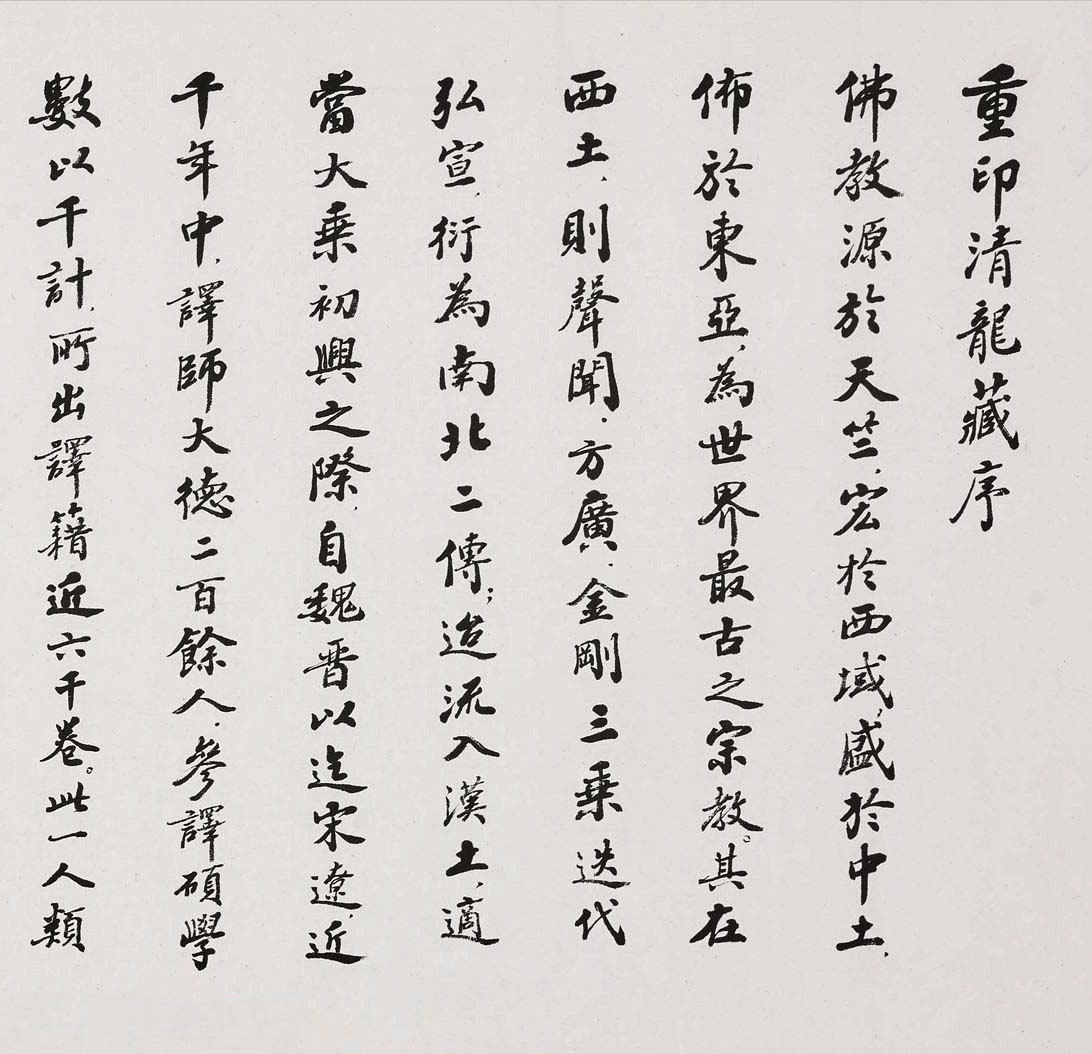 重印清龍藏序
佛教源於天竺、宏於西域、盛於中土、
佈於東亞、為世界最古之宗教。其在
西土、則聲聞、方廣、金剛三乗迭代
弘宣、衍為南北二傳；迨流入漢土、適
當大乗初興之際、自魏晋以迄宋遼、近
千年中、譯師大德二百餘人、參譯碩學
數以千計、所出譯籍近六千卷。此一人類